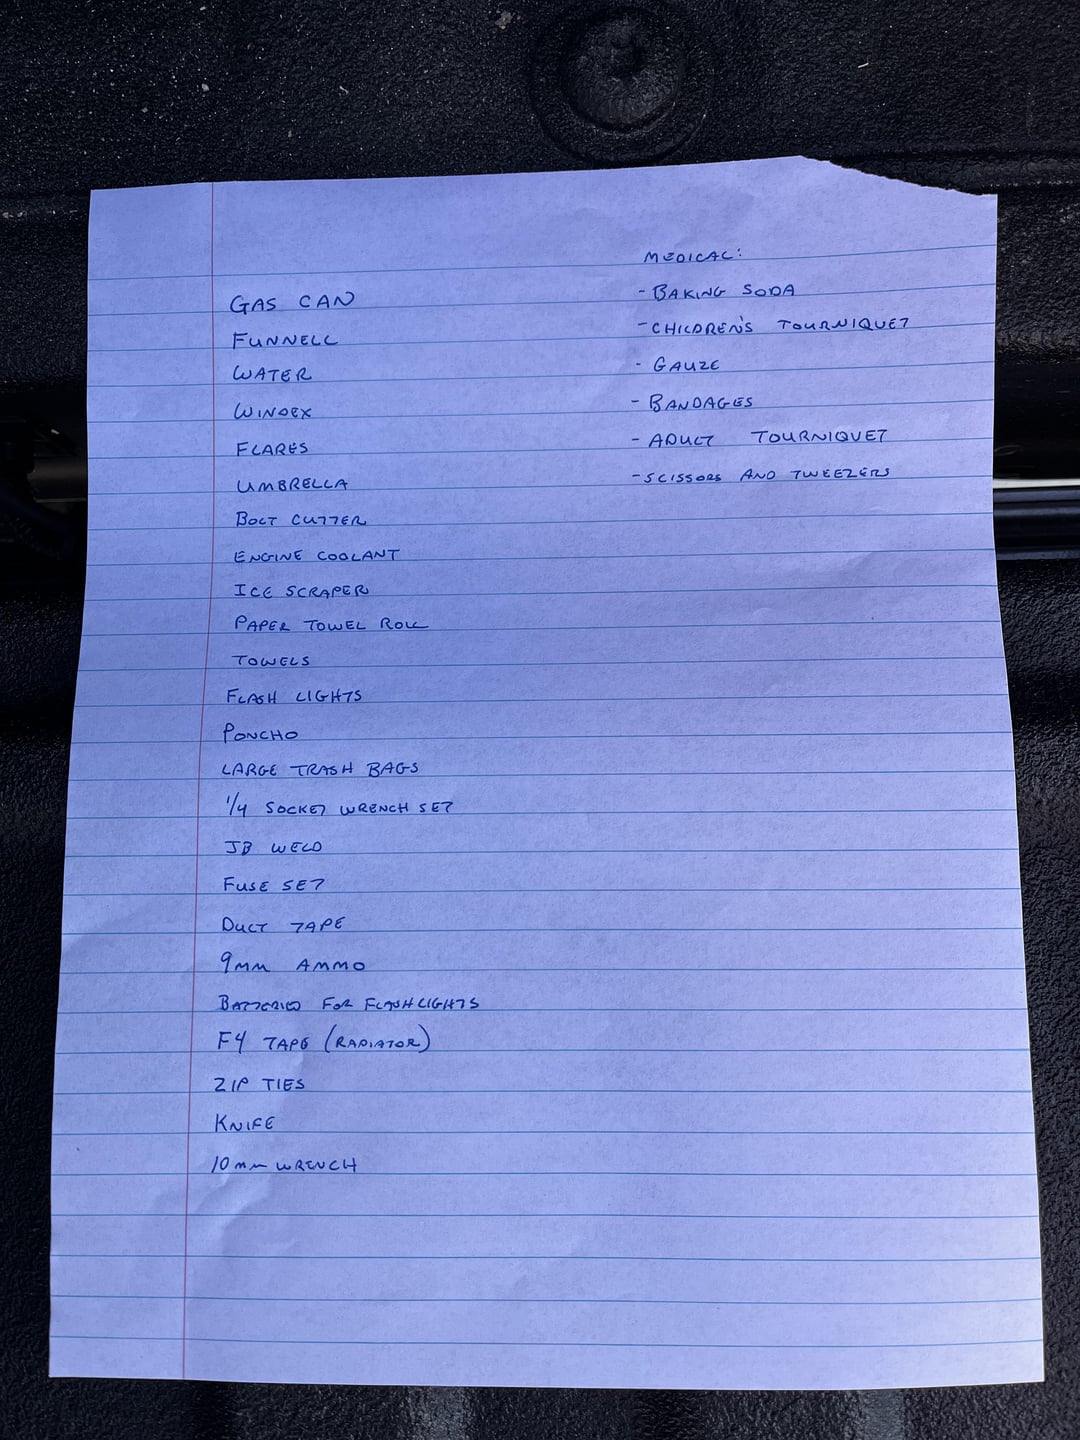 GAS CAN
FUNNELL
WATER
WINDEX
FLARES
UMBRELLA
BOLT CUTTER
ENGINE COOLANT
ICE SCRAPER
PAPER TOWEL ROLL
TOWELS
FLASH LIGHTS
PONCHO
LARGE TRASH BAGS
1/4 SOCKET WRENCH SET
JB WELD
FUSE SET
DUCT TAPE
9MM AMMO
BATTERIES FOR FLASHLIGHTS
F4 TAPE (RADIATOR)
ZIP TIES
KNIFE
10mm WRENCH
MEDICAL:
- BAKING SODA
- CHILDREN'S TOURNIQUET
- GAUZE
- BANDAGES
- ADULT TOURNIQUET
- SCISSORS AND TWEEZERS